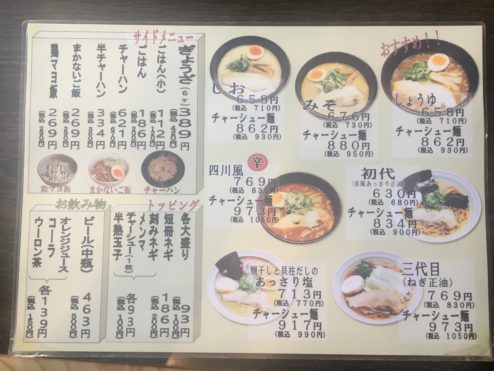 サイドメニュー
ぎょうざ(6ヶ) 389円 (税込 420円)
ごはん(小) 112円
ごはん 166円
チャーハン 621円
半チャーハン 334円
まかないご飯 269円
鶏マヨ飯 269円
鶏マヨ飯
まかないご飯
チャーハン
お飲み物
ビール(中瓶) 463円 (税込 500円)
オレンジジュース
コーラ
ウーロン茶
各139円 (税込 150円)
トッピング
各大盛り 93円 (税込 100円)
短冊ネギ
刻みネギ
186円 (税込 200円)
メンマ
チャーシュー(1枚)
半熟玉子
各93円 (税込 100円)
おすすめ!!
しお
658円
(税込 710円)
チャーシュー麺
862円
(税込 930円)
みそ
676円
(税込 730円)
チャーシュー麺
880円
(税込 950円)
しょうゆ
658円
(税込 710円)
チャーシュー麺
862円
(税込 930円)
四川風
辛
769円
(税込 830円)
チャーシュー麺
973円
(税込 1050円)
初代
630円
(税込 680円)
チャーシュー麺
834円
(税込 900円)
あっさり塩
713円
(税込 770円)
チャーシュー麺
917円
(税込 990円)
三代目
(ねぎ正油)
769円
(税込 830円)
チャーシュー麺
973円
(税込 1050円)